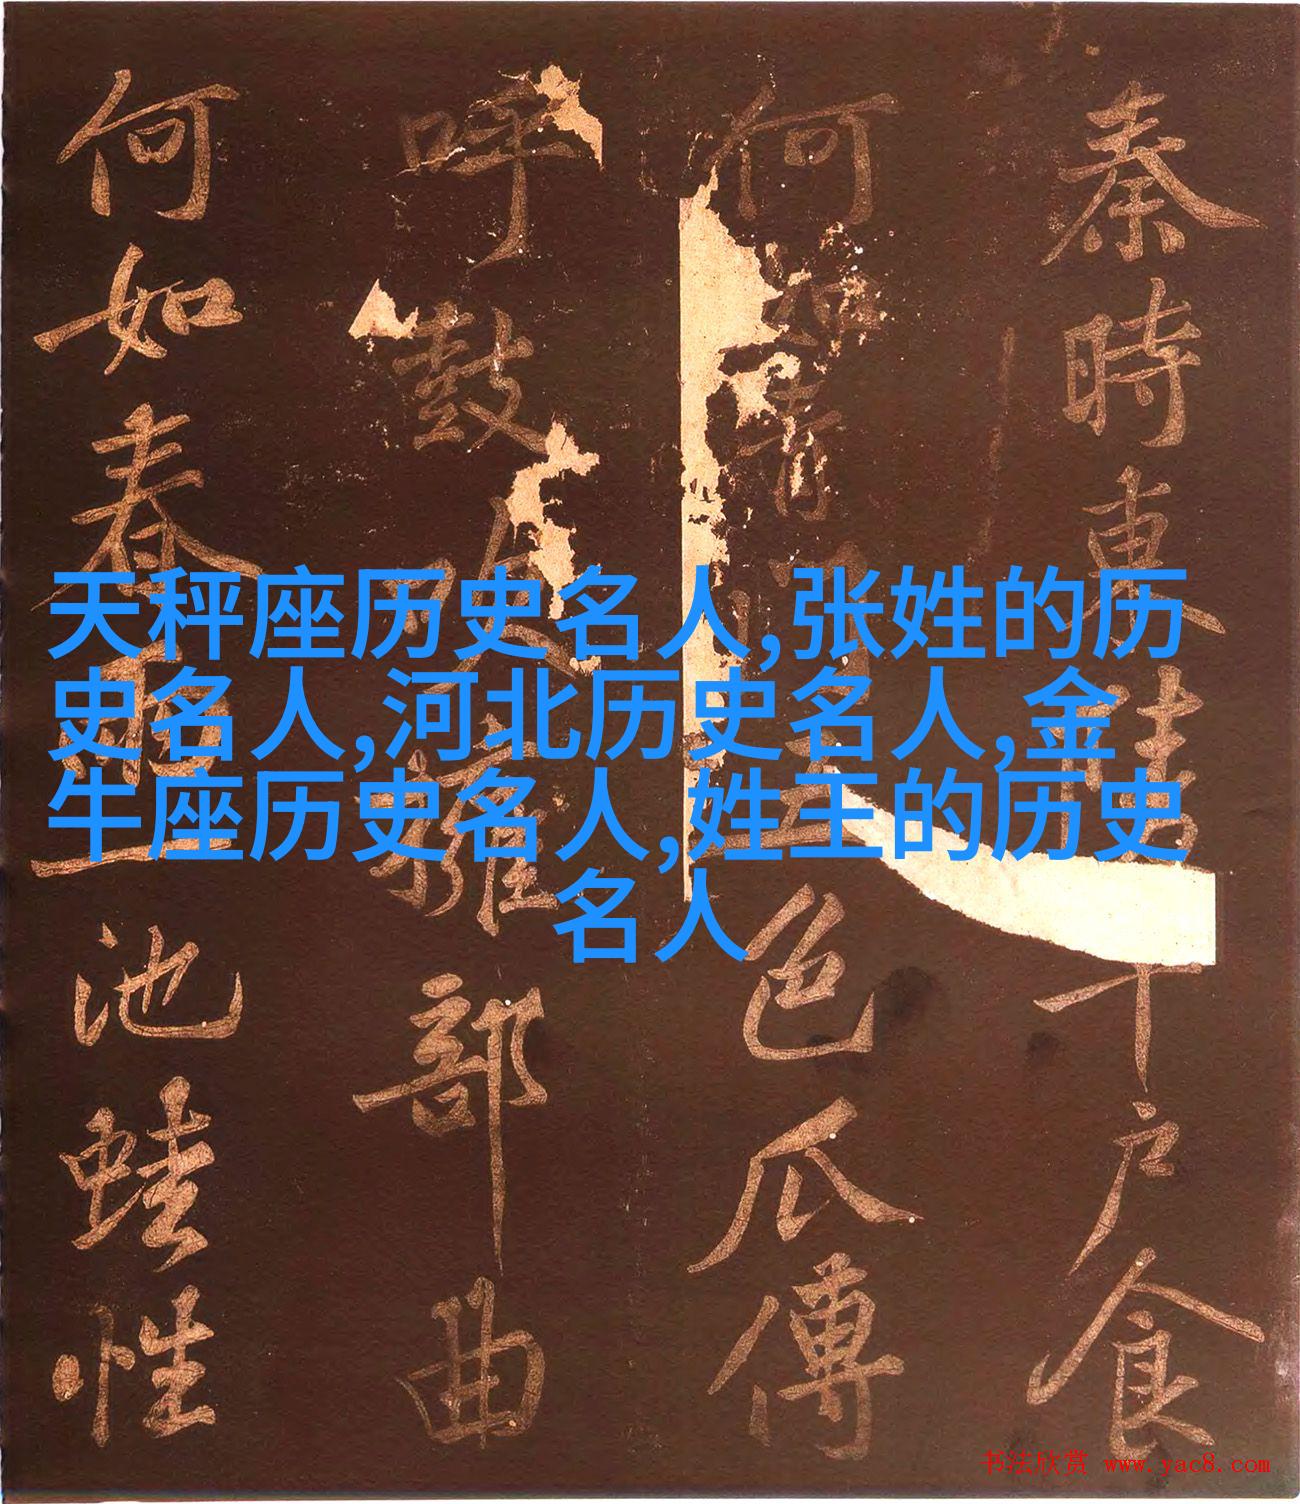 天秤座历史名人,张姓的历
史名人,河北历史名人,金
牛座历史名人,姓王的历史
名人
秦時東千户食
何如青五色瓜傳
呼鼓吹擁部曲
何如春一池蛙性
书法欣赏 www.yac8.com